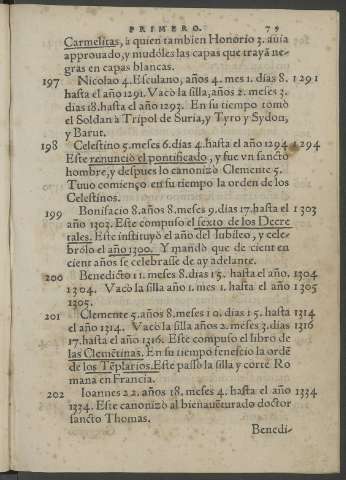 PRIMERO. 79
Carmelitas, à quien tambien Honorio 3. auia
approuado, y mudóles las capas que trayã ne-
gras en capas blancas.
197 Nicolao 4. Esculano, años 4. mes 1. dias 8. 1291
hasta el año 1291. Vacò la silla, años 2. meses 3.
dias 18. hasta el año 1293. En su tiempo tomò
el Soldan à Tripol de Suria, y Tyro y Sydon,
y Barut.
198 Celestino 5. meses 6. dias 4. hasta el año 1294 1294
Este renunciò el pontificado, y fue vn sancto
hombre, y despues lo canonizò Clemente 5.
Tuuo comienço en su tiempo la orden de los
Celestinos.
199 Bonifacio 8. años 8. meses 9. dias 17. hasta el 1303
año 1303. Este compuso el sexto de los Decre
tales. Este instituyò el año del Iubileo, y cele-
brólo el año 1300. Y mandò que de cient en
cient años se celebrasse de ay adelante.
200 Benedicto 11. meses 8. dias 15. hasta el año. 1304
1304. Vacò la silla año 1. mes 1. hasta el año 1305
1305.
201 Clemente 5. años 8. meses 10. dias 15. hasta 1314
el año 1314. Vacò la silla años 2. meses 3. dias 1316
17. hasta el año 1316. Este compuso el libro de
las Clemẽtinas. En su tiempo fenescio la ordẽ
de los Tẽplarios. Este passò la silla y corte Ro
mana en Francia.
202 Ioannes 22. años 18. meses 4. hasta el año 1334
1334. Este canonizò al bienauẽturado doctor
sancto Thomas.
Benedi-